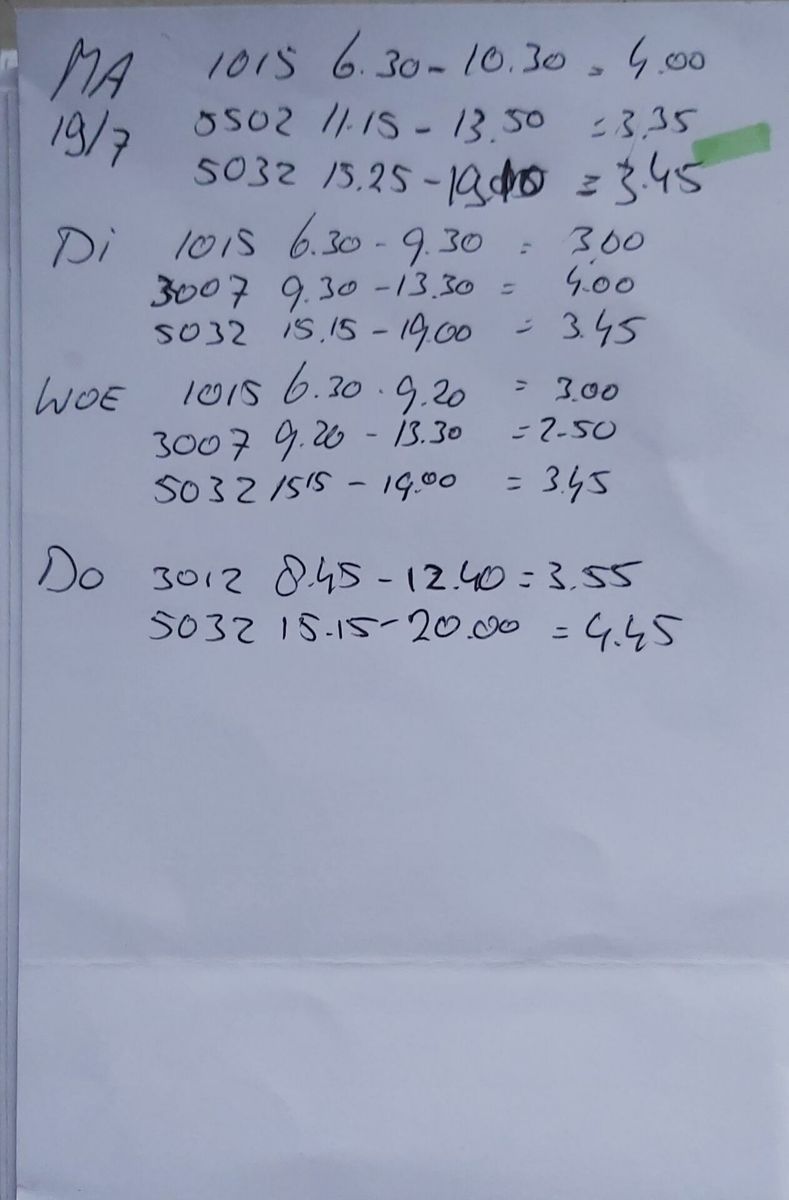 MA 1015 6.30 - 10.30 = 4.00
19/7 5502 11.15 - 13.50 = 3.35
5032 15.25 - 19.10 = 3.45
Di 1015 6.30 - 9.30 = 3.00
3007 9.30 - 13.30 = 4.00
5032 15.15 - 19.00 = 3.45
WOE 1015 6.30 - 9.20 = 3.00
3007 9.20 - 13.30 = 2.50
5032 15.15 - 19.00 = 3.45
Do 3012 8.45 - 12.40 = 3.55
5032 15.15 - 20.00 = 4.45